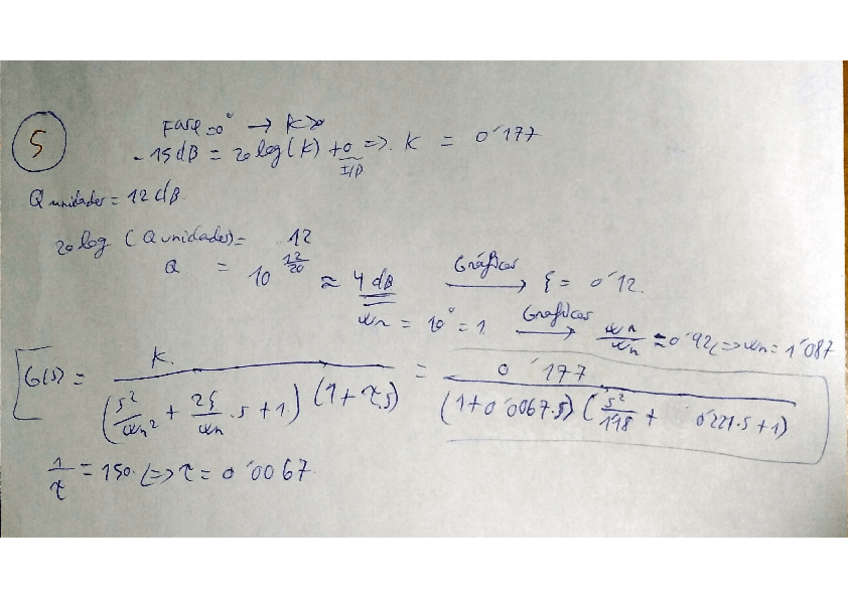 5
Fase=0° → K>0
-15dB = 20log(K) + 0 => K = 0'177
I/D
Q unidades = 12dB.
20log (Q unidades) = 12
Q = 10^(12/20) ≈ 4 dB → Gráficas ξ = 0'12.
ωr = 10° = 1. → Graficas ωr/ωn ≈ 0'92 => ωn = 1'087
G(s) = K. / ((s²/ωn² + 2ξ/ωn · s + 1) (1 + τ.s)) = 0'177 / ((1+0'0067.s) (s²/1'18 + 0'221.s + 1))
1/τ = 150. (=> τ = 0'0067.